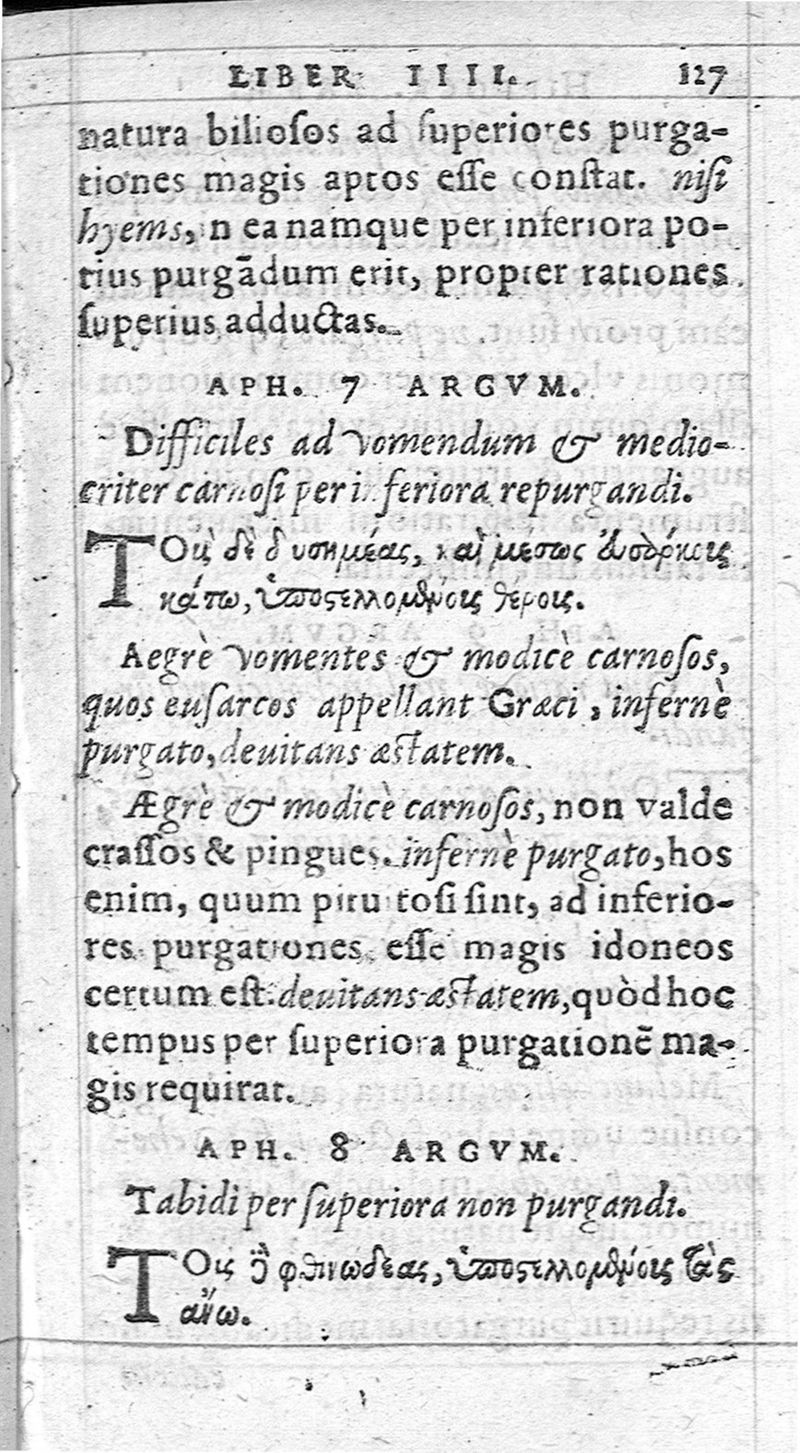 LIBER IIII. 127
natura biliosos ad superiores purga-
tiones magis aptos esse constat. nisi
hyems, in ea namque per inferiora po-
tius purgādum erit, propter rationes
superius adductas.
APH. 7 ARGVM.
Difficiles ad vomendum & medio-
criter carnosi per inferiora repurgandi.
Τοὺς δὲ δυσημέας, καὶ μέσως εὐσάρκους
κάτω, ὑποστελλομένους θέρος.
Aegrè vomentes & modicè carnosos,
quos eusarcos appellant Græci, infernè
purgato, deuitans æstatem.
Ægrè & modicè carnosos, non valde
crassos & pingues. infernè purgato, hos
enim, quum pituitosi sint, ad inferio-
res purgationes esse magis idoneos
certum est. deuitans æstatem, quòd hoc
tempus per superiora purgationē ma-
gis requirat.
APH. 8 ARGVM.
Tabidi per superiora non purgandi.
Τοὺς δὲ φθινώδεας, ὑποστελλομένους τὰς
ἄνω.